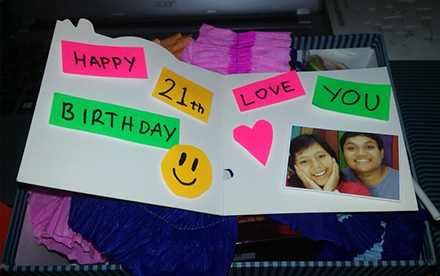 HAPPY
21th
BIRTHDAY
LOVE YOU